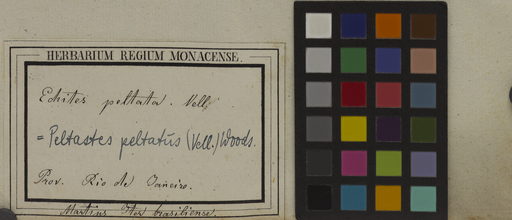 HERBARIUM REGIUM MONACENSE.
Echites peltata. Vell.
= Peltastes peltatus (Vell.) Woods.
Prov. Rio de Janeiro.
Martius Iter brasiliense.